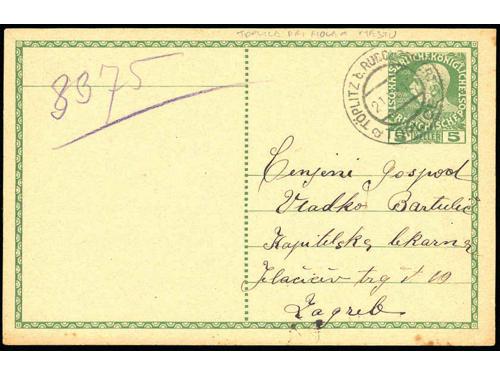 TOPLICE PRI NOVEM MESTU
8975
TÖPLITZ b. RUDOLFSWERT
KAISERLICHE KÖNIGLICHE
ÖSTERREICHISCHE
5 HELLER 5
Cenjeni gospod
Vladko Bartulić
Kapitelska lekarna
Jelačićiv trg 10
Zagreb